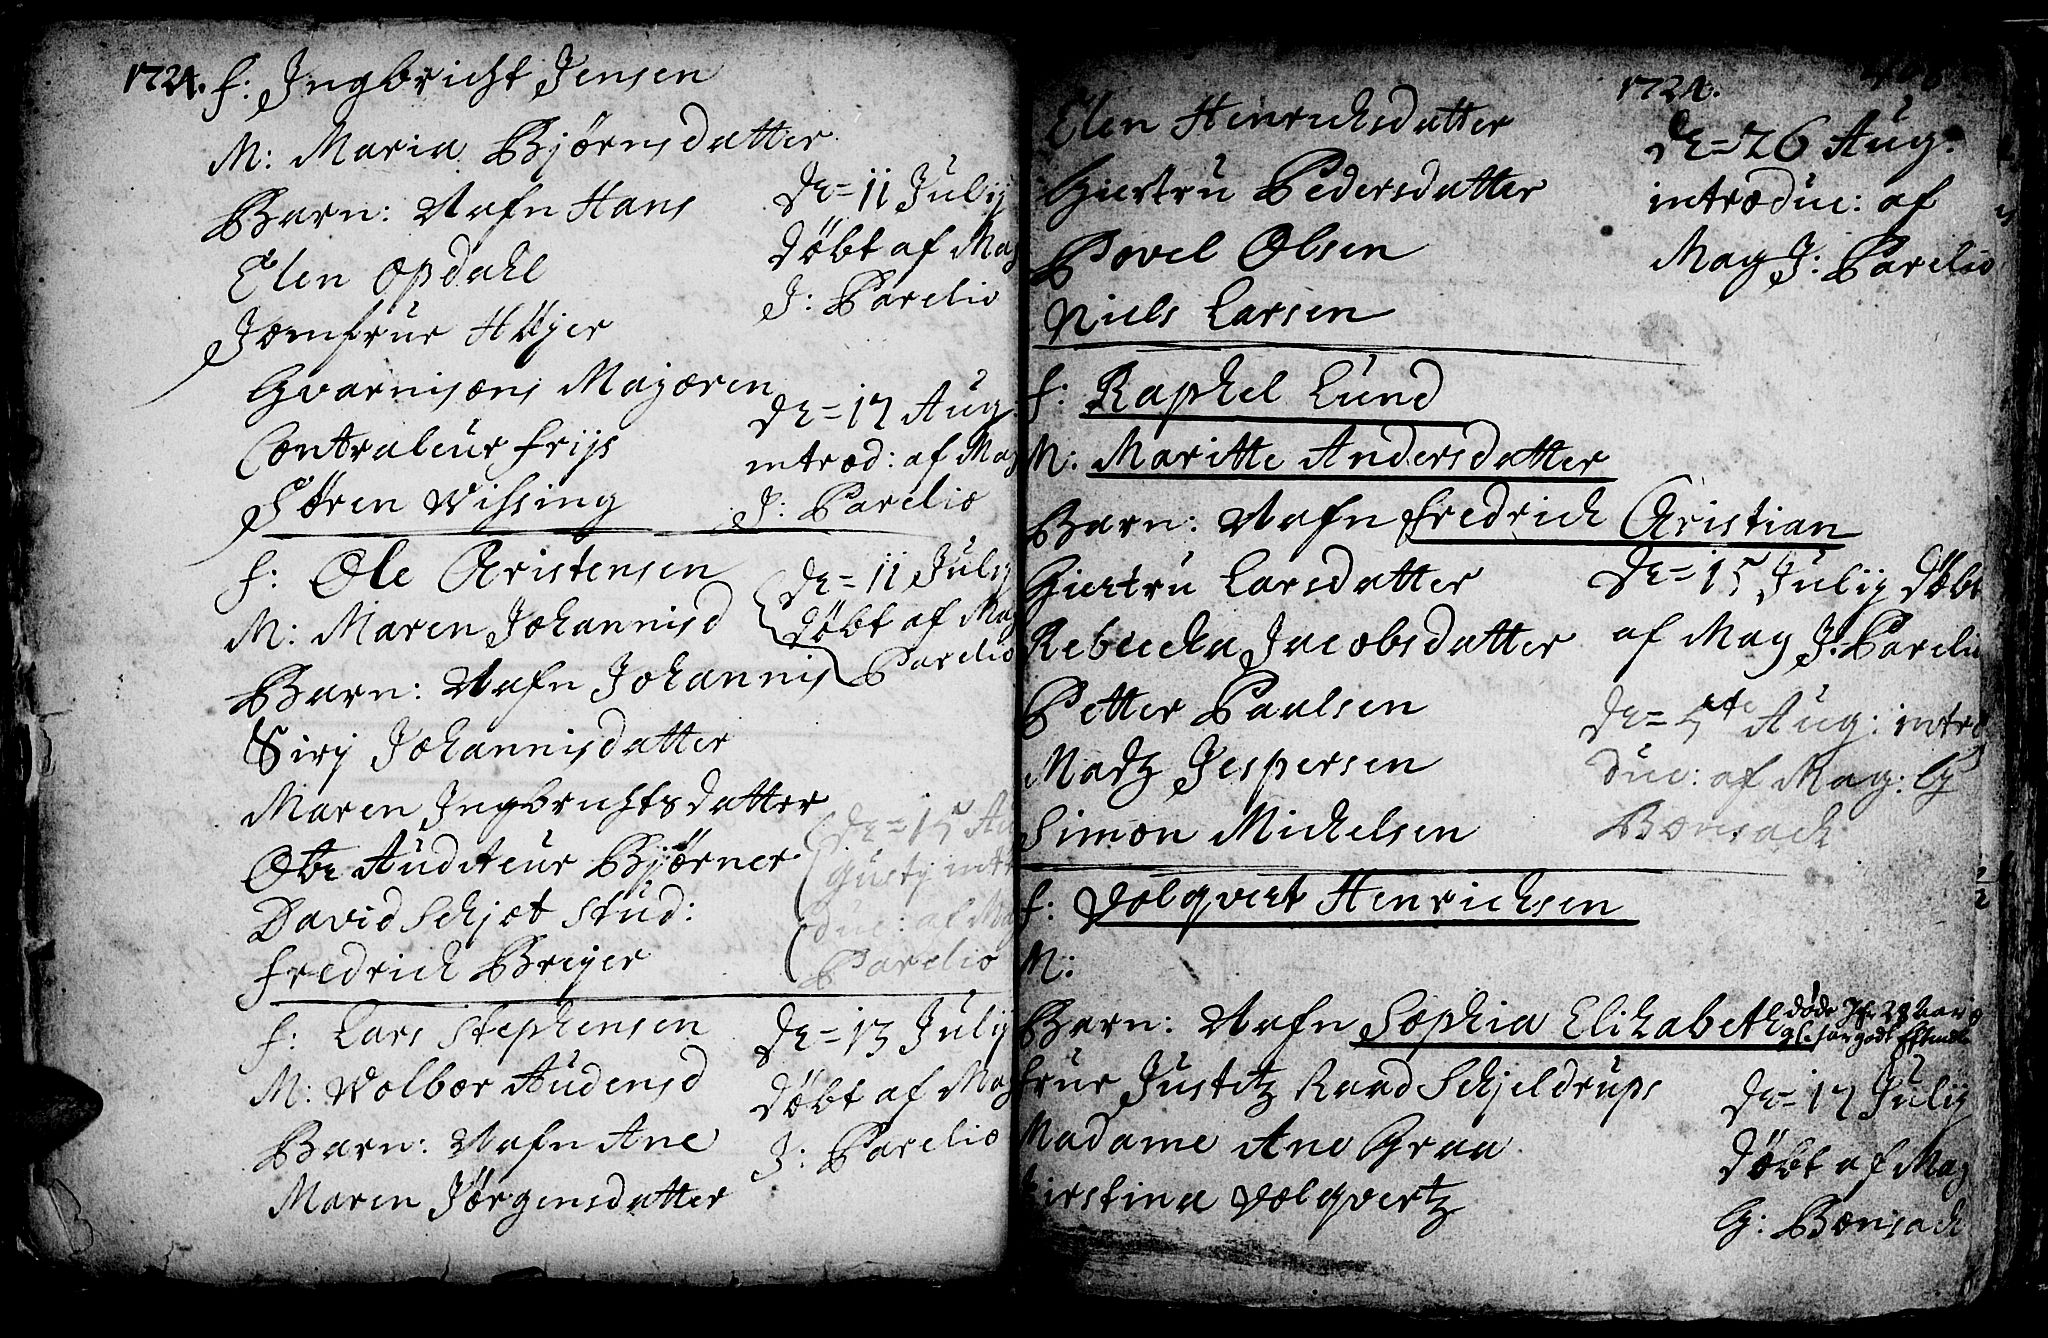 1724. f: Ingbricht Jensen
M: Maria Bjørnsdatter
Barn: Nafn Hans
Elen Opdahl
Jomfrue Høyer
Gvarnisons Majoren
Contraleur friis
Søren Wissing
De = 11 Julij
døbt af Mag
J: Parelio
De = 17 Aug
introd: af Mag
J: Parelio
f: Ole Christensen
M: Maren Johannisd
Barn: Nafn Johannis
Sirj Johannisdatter
Maren Ingbrichtsdatter
Obr Auditeur Bjørner
David Schjøt Stud:
fredrich Breyer
De = 11 Julij
døbt af Mag
Parelio
De = 15 Au
gustij intr
duc: af Mag
Parelio
f: Lars Stephensen
M: Wolbor Audensd
Barn: Nafn Ane
Maren Jørgensdatter
De = 13 Julij
døbt af Mag
J: Parelio
1724.
Elen Henrichsdatter
Giertru Pedersdatter
Povel Olsen
Niels Larsen
De = 26 Aug:
introduc: af
Mag J: Parelio
f: Raphel Lund
M: Maritte Andersdatter
Barn: Nafn fredrich Christian
Giertru Larsdatter
Rebecka Jacobsdatter
Petter Paulsen
Madz Jespersen
Simon Michelsen
De = 15 Julij døbt
af Mag J: Parelio
De = 5te Aug: intro
duc: af Mag: G
Bonsach
f: Volqvert Henrichsen
M:
Barn: Nafn Sophia Elizabeth døde
frue Justitz Raad Schjeldrups
Madame Ane Graa
Kirstina Volqvertz
De = 17 Julij
døbt af Mag
G: Bonsach